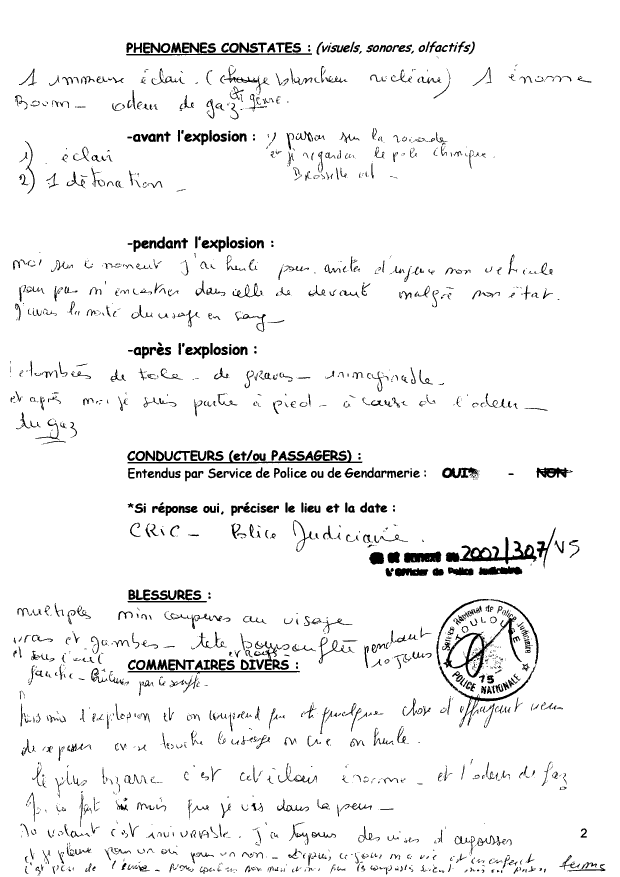 PHENOMENES CONSTATES : (visuels, sonores, olfactifs)
1 immense éclair. (blancheur nucléaire) 1 énorme
Boum - odeur de gaz
-avant l'explosion : je passais sur la rocade
et je regardai le pole chimique.
1) éclair
2) 1 détonation -
-pendant l'explosion :
moi sur ce moment j'ai hurlé pour mon véhicule
pour pas m'encastrer dans celle de devant malgré mon état.
J'avais la moitié du visage en sang -
-après l'explosion :
retombées de tole - de gravas - inimaginable.
et après moi je suis partie à pied - à cause de l'odeur -
du gaz
CONDUCTEURS (et/ou PASSAGERS) :
Entendus par Service de Police ou de Gendarmerie : OUI - NON
*Si réponse oui, préciser le lieu et la date :
CRIC - Police Judiciaire.
et annexé au 2002/307/VS
L'Officier de Police Judiciaire
BLESSURES :
multiples mini coupures au visage
bras et jambes - tete boursouflée pendant
10 jours
et sous l'œil
gauche - par le souffle -
Service Régional de Police Judiciaire
TOULOUSE
15
POLICE NATIONALE
COMMENTAIRES DIVERS :
hormis l'explosion et on comprend que quelque chose d'effrayant vient
de se passer on se touche le visage on crie on hurle.
le plus bizarre c'est cet éclair énorme - et l'odeur de gaz
mois que je vis dans la peur -
volant c'est invivable. J'ai toujours des crises d'angoisses
et je pleure pour un oui pour un non - depuis ce jour ma vie est un enfer
2